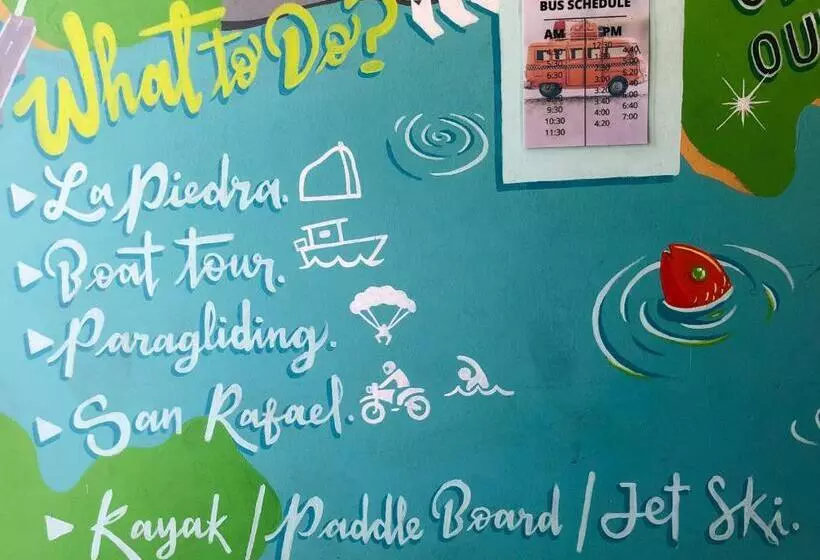 What to Do?
OU
BUS SCHEDULE
AM PM
6:30
9:30
10:30
11:30
12:30
3:00
3:20
3:40
4:00
4:20
4:40
5:00
5:20
5:40
6:00
6:40
7:00
La Piedra.
Boat tour.
Paragliding.
San Rafael.
Kayak / Paddle Board / Jet Ski.